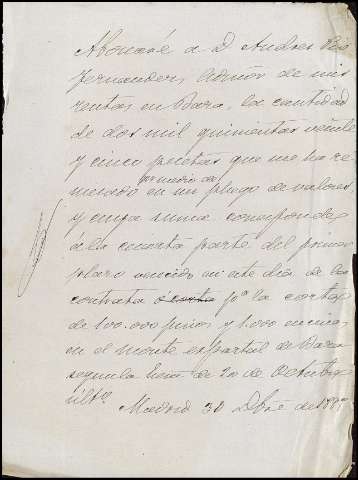 Abonaré a D Andres Rio
Fernandez, Admor de mis
rentas en Baza, la cantidad
de dos mil quinientas veinte
y cinco pesetas que me ha re
por medio de
mesado en un pliego de valores
y cuya suma corresponde
á la cuarta parte del primer
plazo vencido en este dia de la
contrata pª la corta
de 100.000 pinos y 1.000 encinas
en el monte espartal de Baza
segunda de 20 de Octubre
últº
Madrid 30 Dbre de